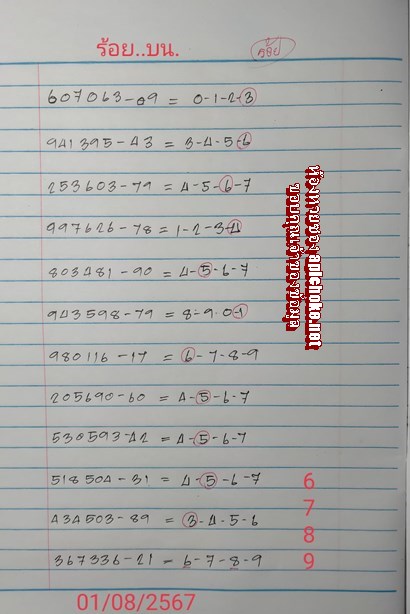 ร้อย..บน.
607063-09 = 0-1-2-3
941395-43 = 3-4-5-6
253603-79 = 4-5-6-7
997626-78 = 1-2-3-4
803481-90 = 4-5-6-7
943598-79 = 8-9-0-1
980116-17 = 6-7-8-9
205690-60 = 4-5-6-7
530593-42 = 4-5-6-7
518504-31 = 4-5-6-7
434503-89 = 3-4-5-6
367336-21 = 6-7-8-9
6
7
8
9
ห้องหวยของ apichoke.net
ขอบคุณเจ้าของข้อมูล
01/08/2567